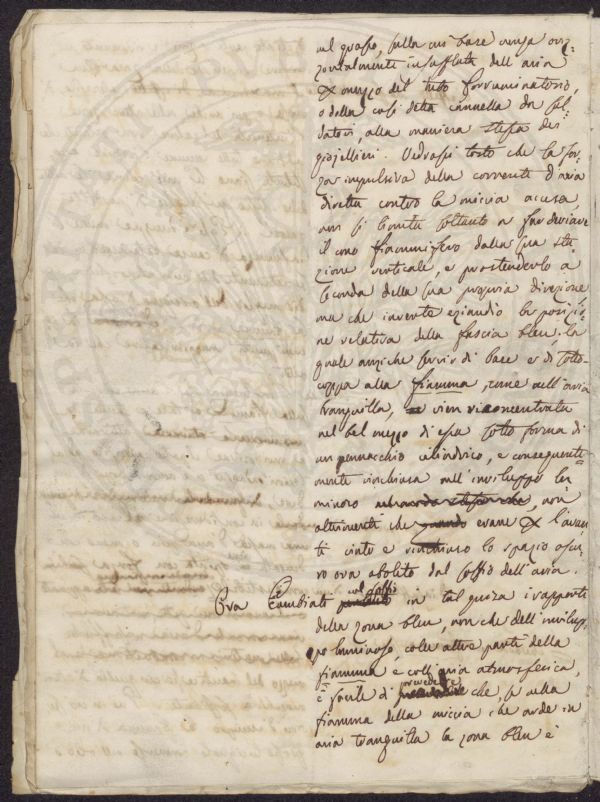 nel grafio, sulla cui base venga oriz=
zontalmente insufflata dell'aria
per mezzo del tubo ferruminatorio,
o della così detta cannella da sal=
datori, alla maniera stessa dei
giojellieri. Vedrassi tosto che la for=
za impulsiva della corrente d'aria
diretta contro la miccia accesa,
non si limita soltanto a far deviare
il cono fiammifero dalla sua sta=
zione verticale, e prostenderlo a
seconda della sua propria direzione
ma che inverte eziandio la posizio=
ne relativa della fascia bleu; la
quale anziché servir di base e di sotto=
coppa alla fiamma, come nell'aria
tranquilla, vien riconcentrata
nel bel mezzo di essa sotto forma di
un pennacchio cilindrico, e conseguente=
mente rinchiusa nell'inviluppo lu=
minoso, non
altrimenti che erane per l'avan=
ti cinto e rinchiuso lo spazio oscu=
ro ora abolito dal soffio dell'aria.
Ora Cambiati col soffio in tal guisa i rapporti
della zona bleu, non che dell'invilup=
po luminoso, colle altre parti della
fiamma e coll'aria atmosferica,
è facile di prevedere che, se nella
fiamma della miccia che arde in
aria tranquilla la zona bleu è